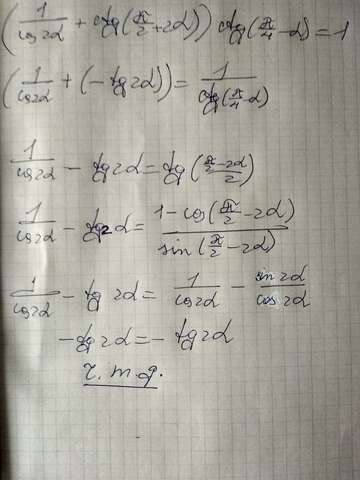 (1/cos2α + ctg(π/2+2α)) ctg(π/4-α)=1
(1/cos2α + (-tg2α))= 1/ctg(π/4-α)
1/cos2α - tg2α=tg((π/2-2α)/2)
1/cos2α - tg2α= (1-cos(π/2-2α))/sin(π/2-2α)
1/cos2α - tg 2α= 1/cos2α - sin2α/cos2α
-tg2α=-tg2α
r.m.g.